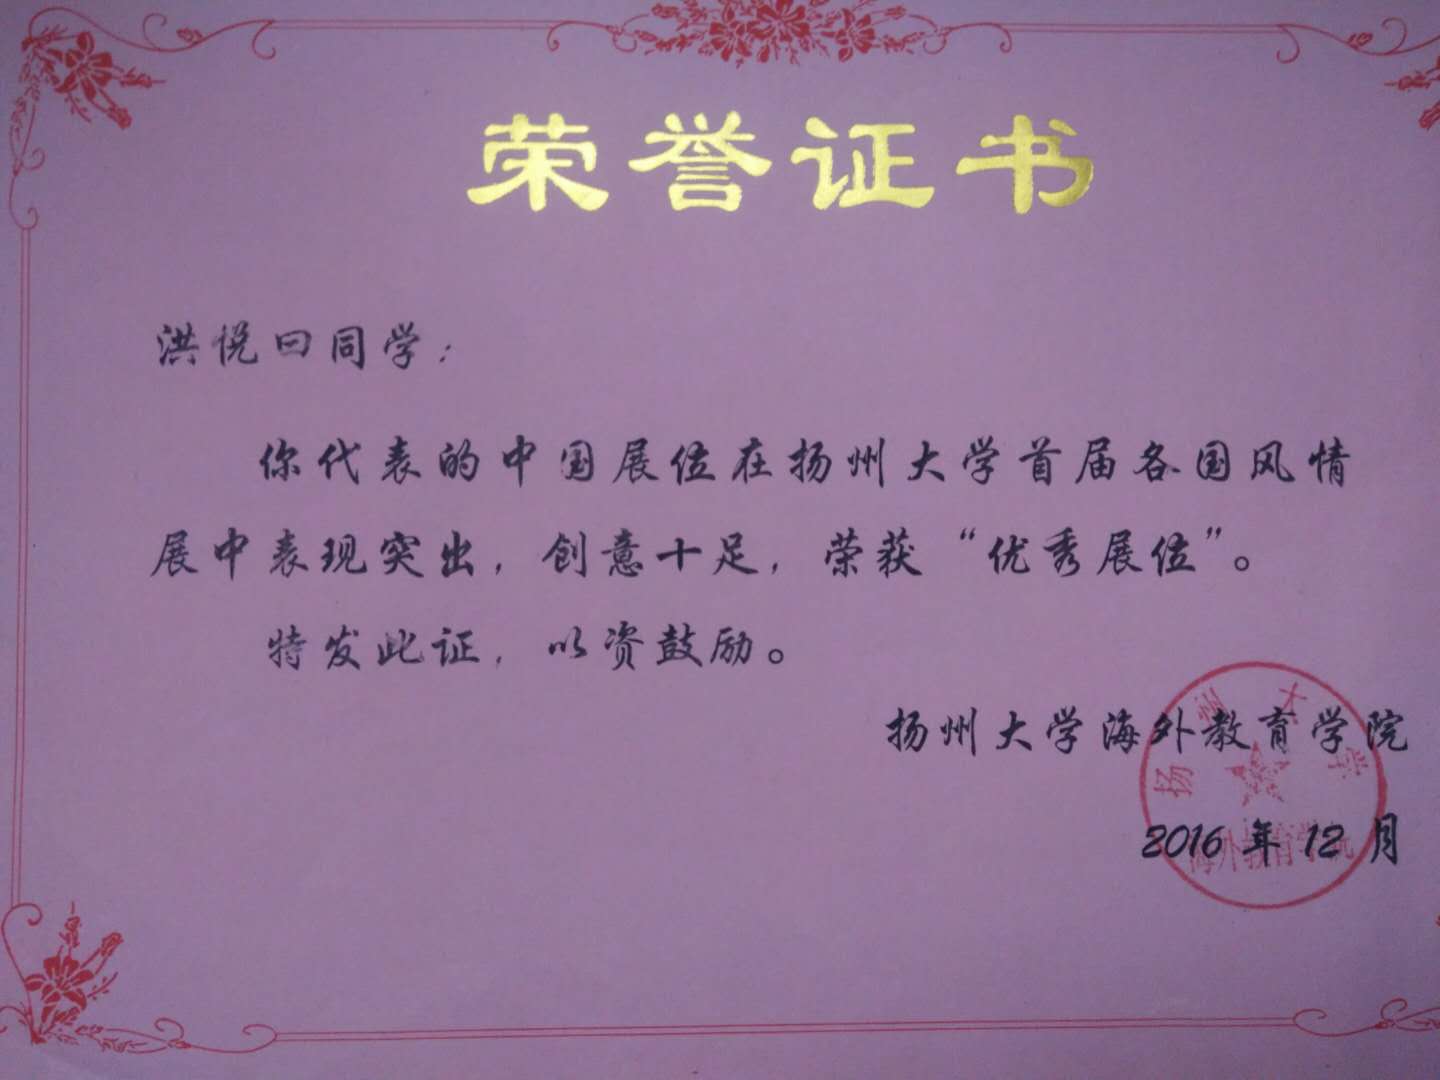 荣誉证书
洪悦曰同学：
你代表的中国展位在扬州大学首届各国风情
展中表现突出，创意十足，荣获“优秀展位”。
特发此证，以资鼓励。
扬州大学海外教育学院
2016 年 12 月
扬州大学
海外教育学院